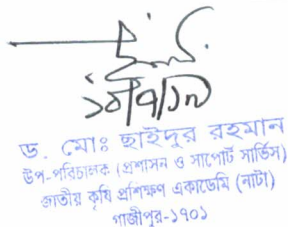 ড. মোঃ ছাইদুর রহমান
উপ-পরিচালক (প্রশাসন ও সাপোর্ট সার্ভিস)
জাতীয় কৃষি প্রশিক্ষণ একাডেমি (নাটা)
গাজীপুর-১৭০১